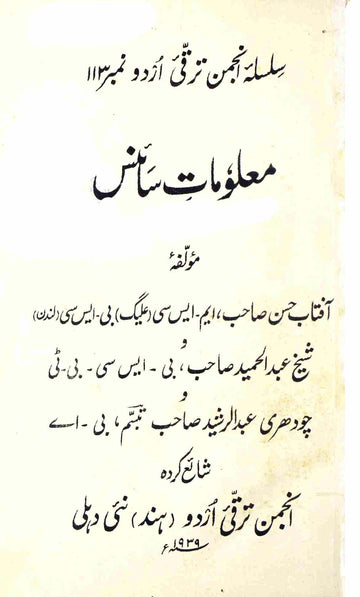 سلسلۂ انجمن ترقّیٔ اُردو نمبر ۱۱۳
معلوُماتِ سائنس
مؤلّفۂ
آفتاب حسن صاحب، ایم-ایس سی (علیگ) بی-ایس سی (لندن)
و
شیخ عبدالحمید صاحب، بی - ایس سی - بی-ٹی
و
چودھری عبدالرشید صاحب تبسّم، بی - اے
شائع کردہ
انجمن ترقّیٔ اُردو (ہند) نئی دہلی
۱۹۳۹ء